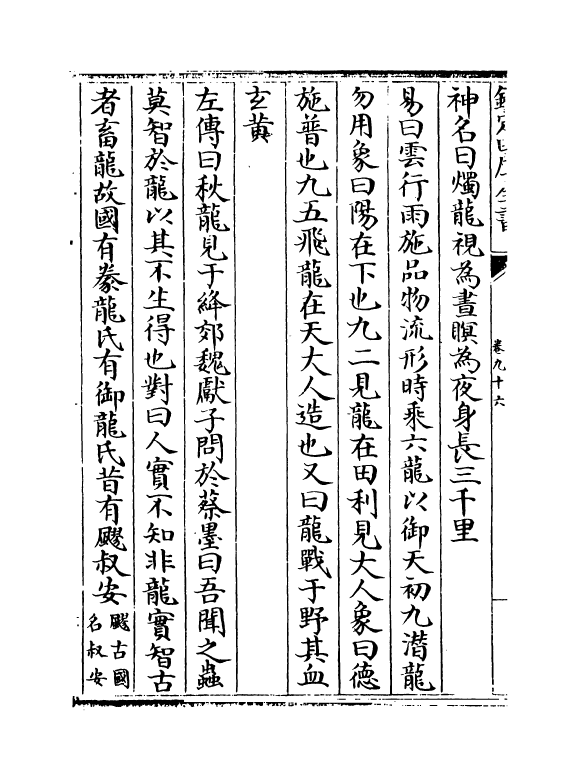 欽定四庫全書
卷九十六
神名曰燭龍視為晝瞑為夜身長三千里
易曰雲行雨施品物流形時乘六龍以御天初九潛龍
勿用象曰陽在下也九二見龍在田利見大人象曰徳
施普也九五飛龍在天大人造也又曰龍戰于野其血
𤣥黄
左傳曰秋龍見于絳郊魏獻子問於蔡墨曰吾聞之蟲
莫智於龍以其不生得也對曰人實不知非龍實智古
者畜龍故國有豢龍氏有御龍氏昔有飂叔安
飂古國
名叔安